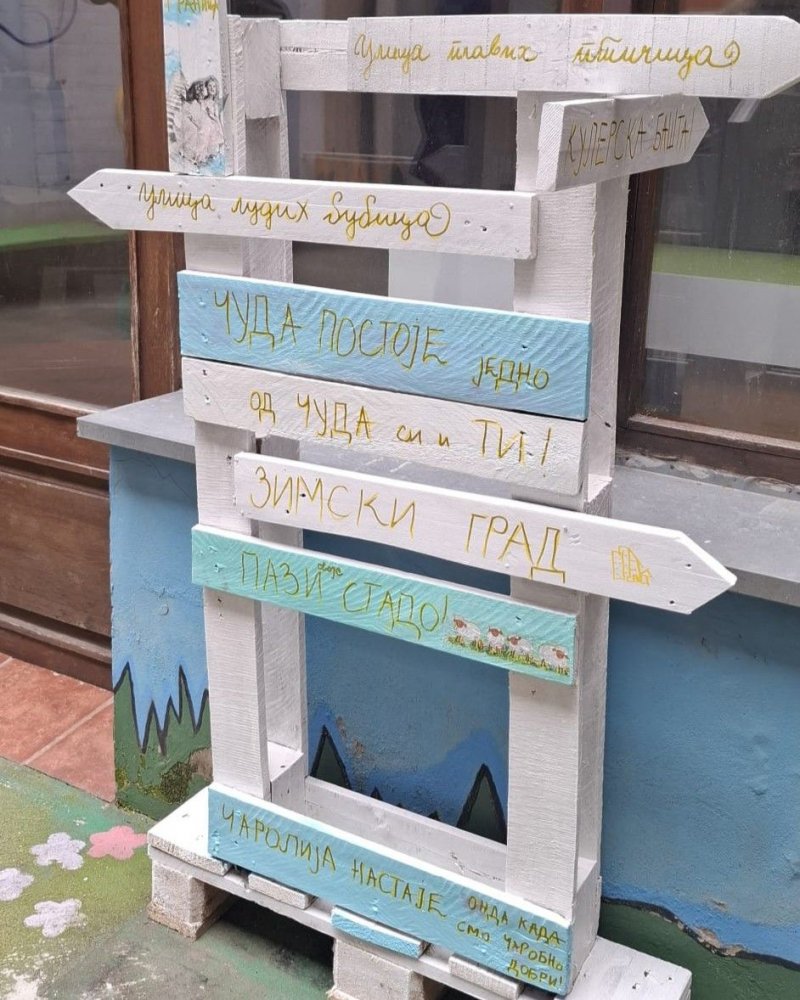 Улица плавих птичица
КУЛЕРСКА БАШТА!
Улица лудих бубица
ЧУДА ПОСТОЈЕ ЈЕДНО
ОД ЧУДА СИ И ТИ!
ЗИМСКИ ГРАД
ПАЗИ СТАДО!
ЧАРОЛИЈА НАСТАЈЕ ОНДА КАДА
СМО ЧАРОБНО
ДОБРИ!